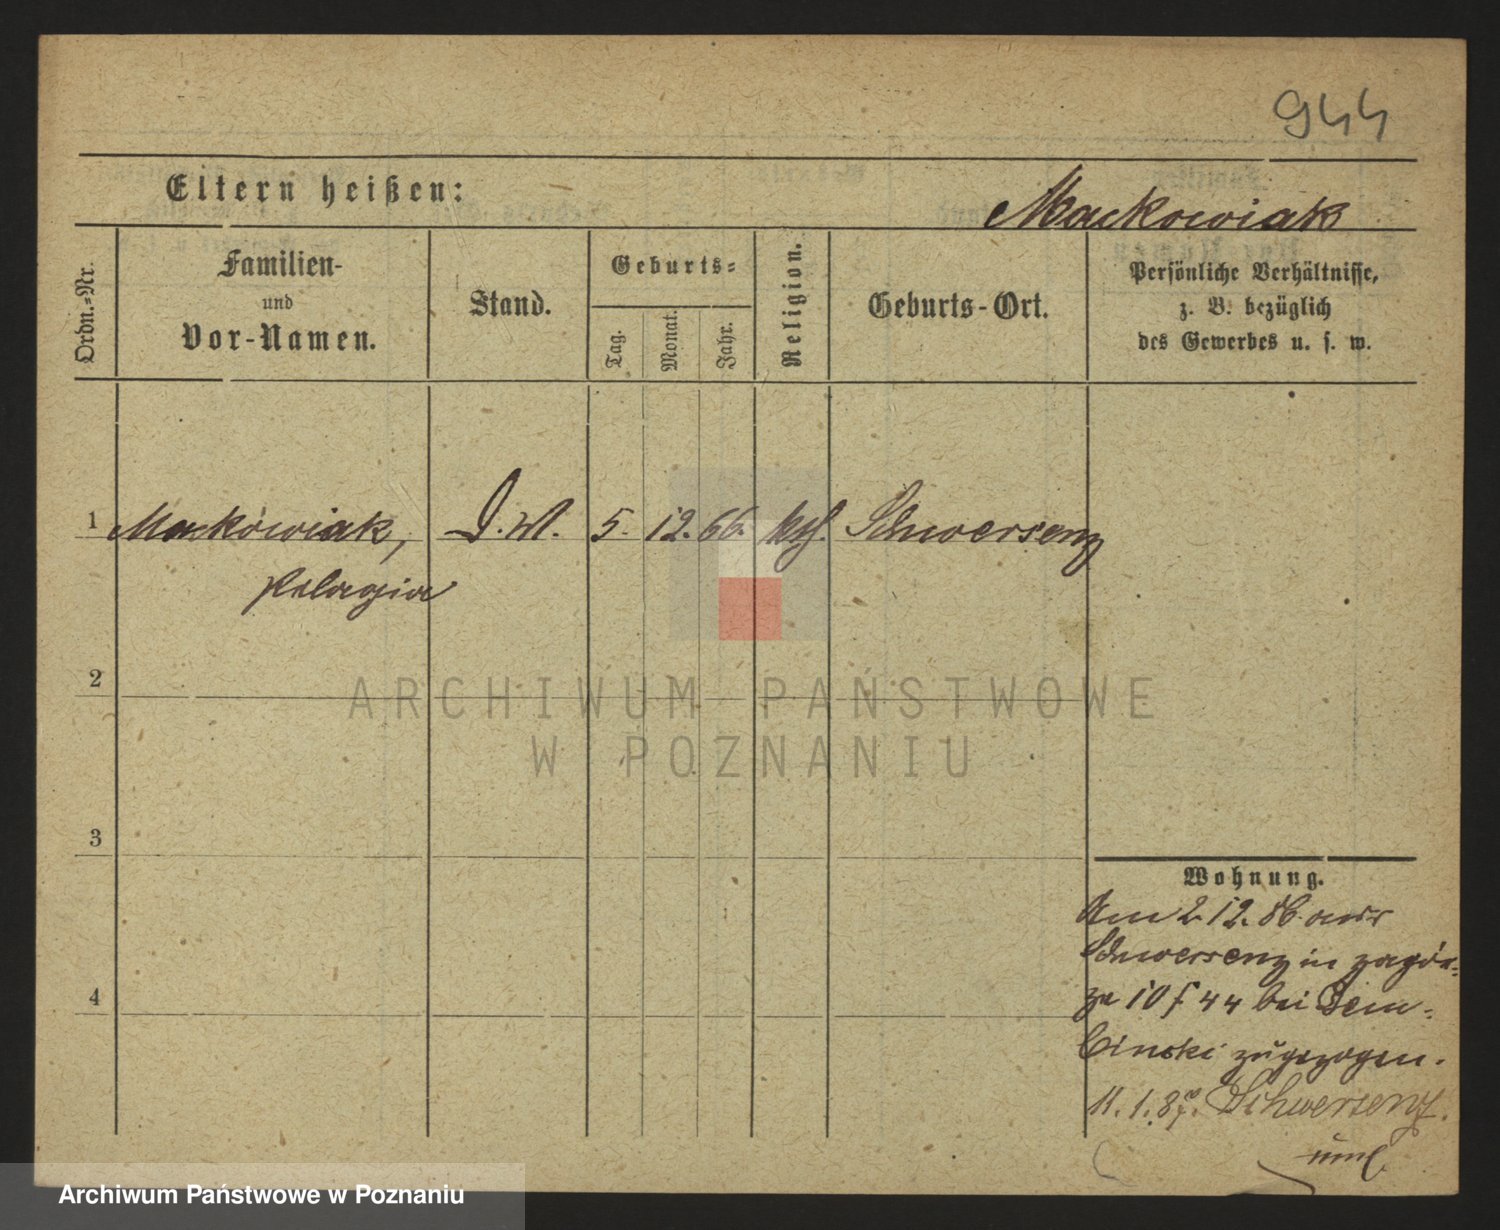 944
Eltern heißen:
Mackowiak
Ordn.-Nr.
Familien-
und
Vor-Namen.
Stand.
Geburts-
Tag.
Monat.
Jahr.
Religion.
Geburts-Ort.
Persönliche Verhältnisse,
z. B. bezüglich
des Gewerbes u. s. w.
1 Mackowiak, D. M. 5. 12. 66. kth. Schwersenz
Pelagia
2
3
4
Wohnung.
Am 2. 12. 86. aus
Schwersenz in Zagór-
ze 10 f 44 bei Dem-
binski zugezogen.
11. 1. 87. Schwersenz.
ARCHIWUM PAŃSTWOWE
W POZNANIU
Archiwum Państwowe w Poznaniu